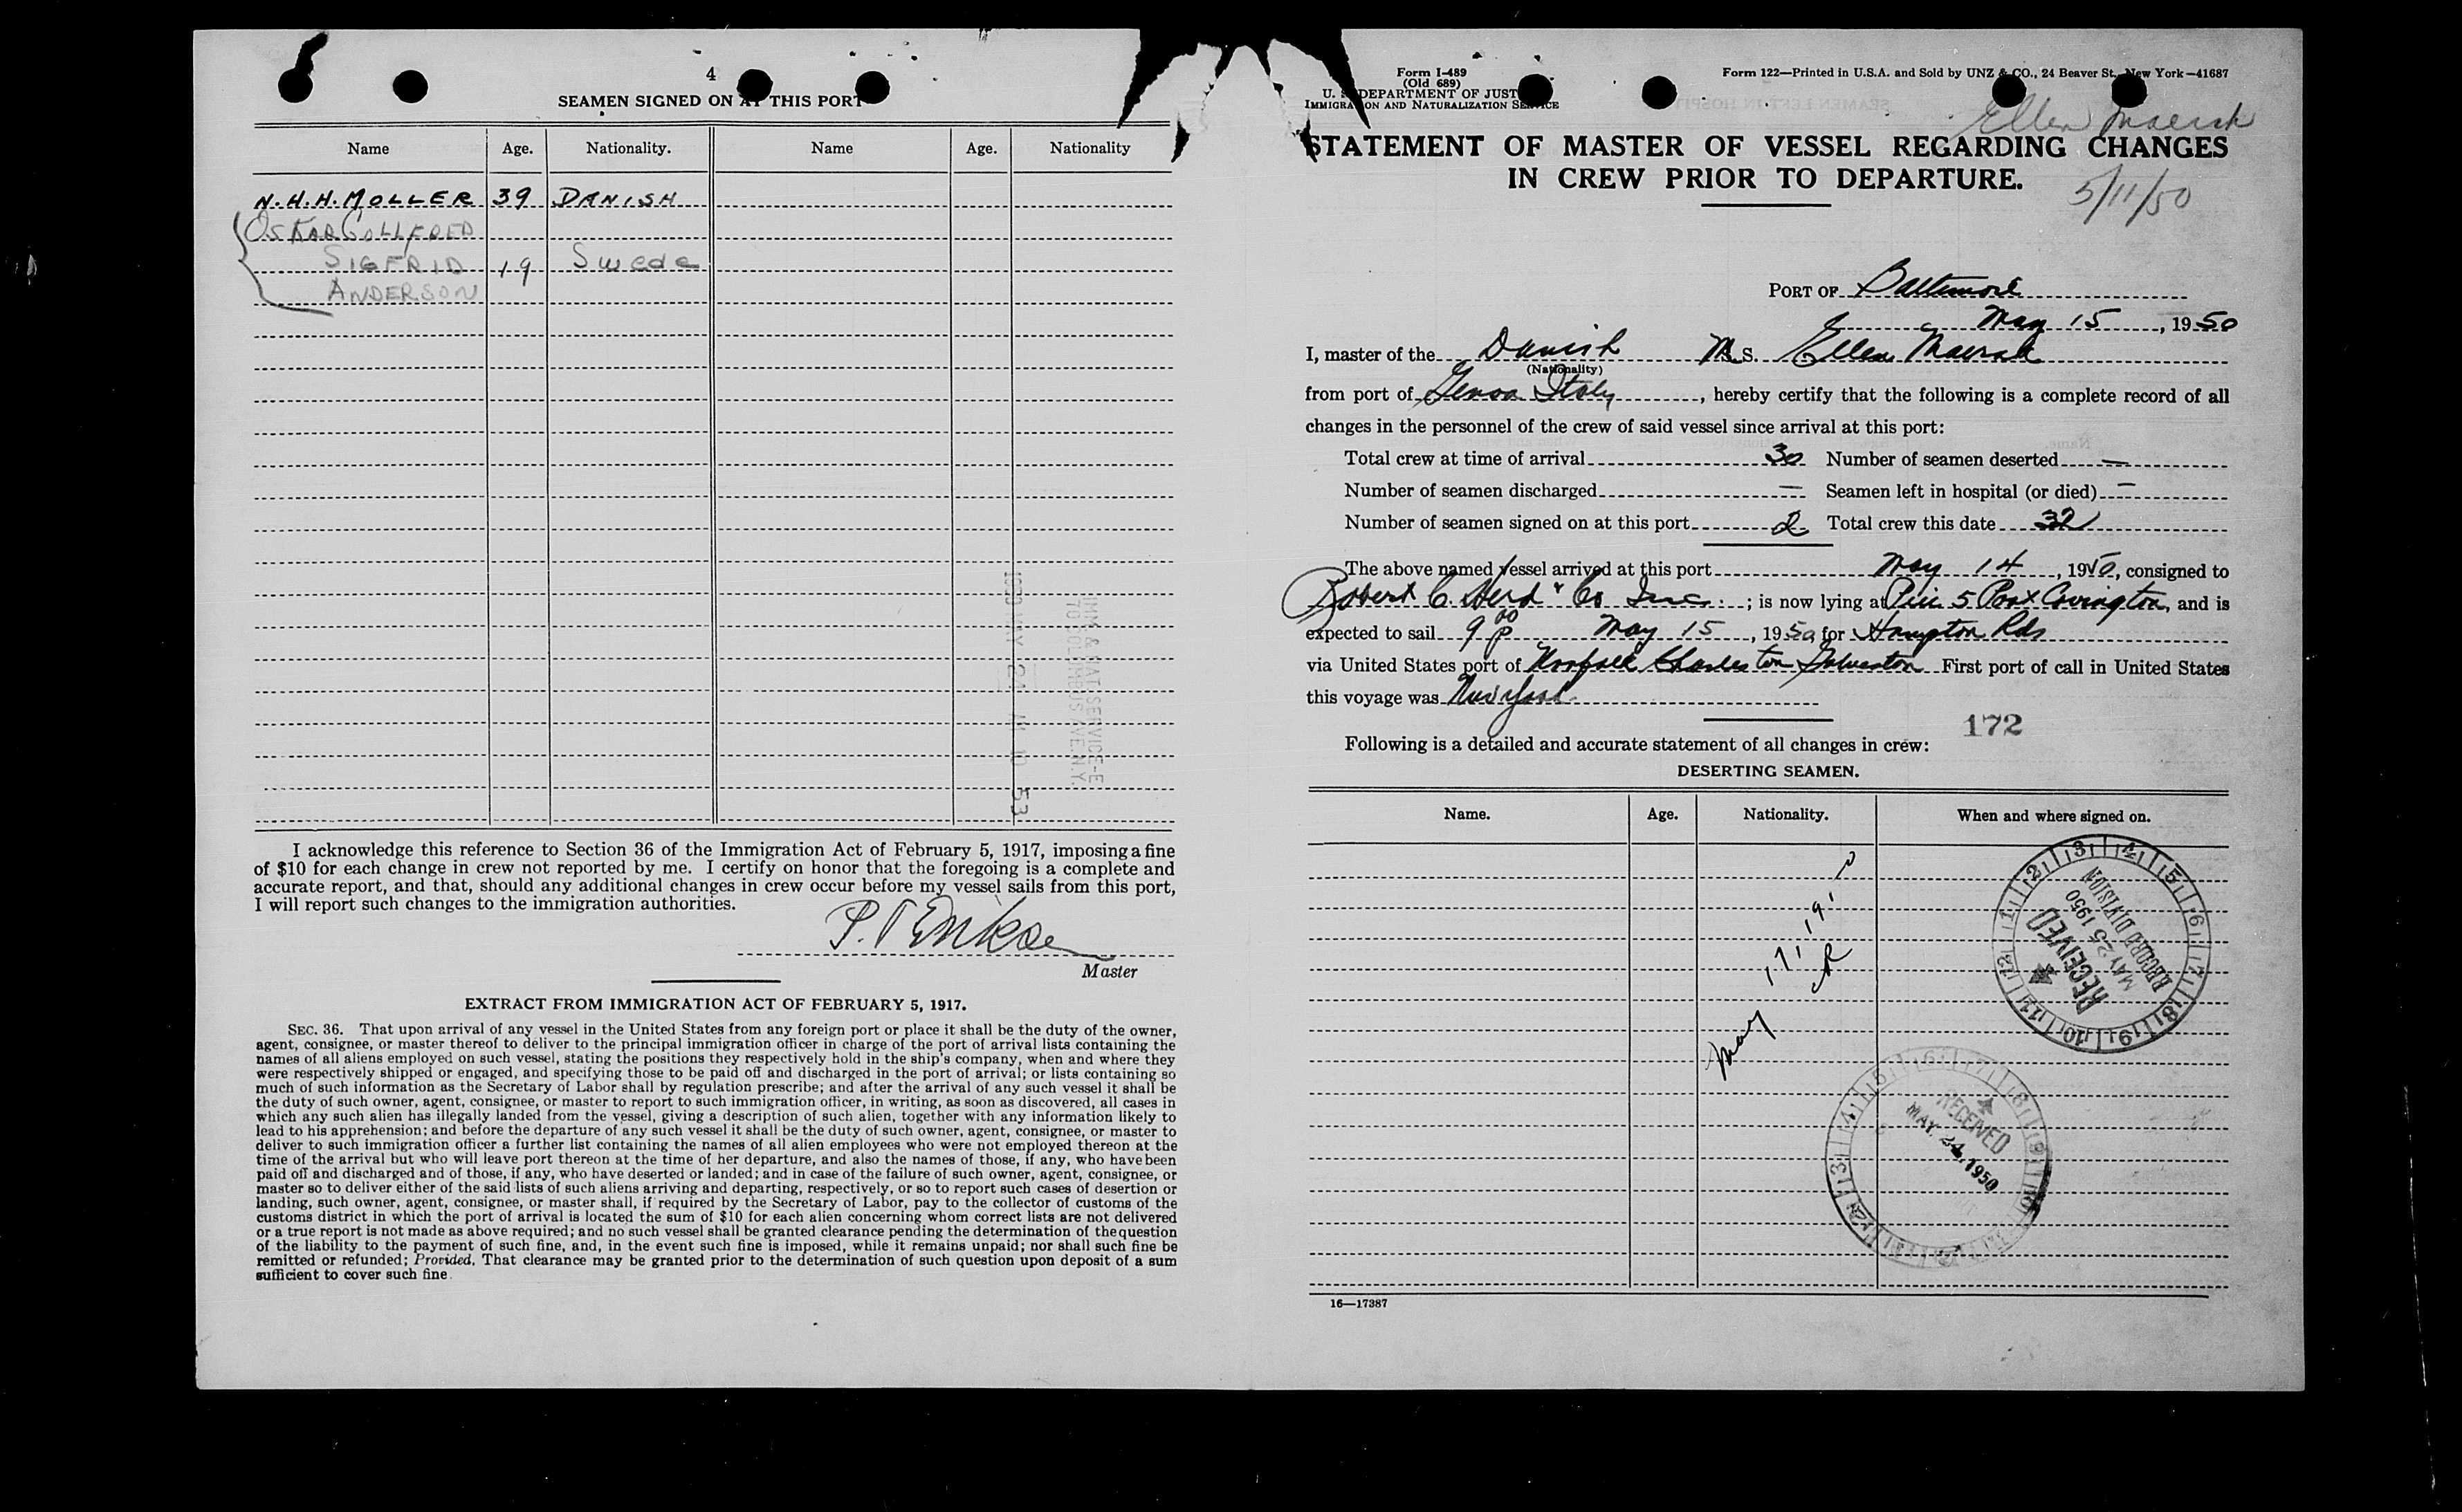 4
SEAMEN SIGNED ON AT THIS PORT
Name Age. Nationality. Name Age. Nationality
N.H.H. MOLLER 39 DANISH
OSKAR GOLLFRED
SIGFRID 19 Swede
ANDERSON
IMM. & NAT. SERVICE-E
70 COLUMBUS AVE. N.Y.
1950 MAY 24 AM 10 53
I acknowledge this reference to Section 36 of the Immigration Act of February 5, 1917, imposing a fine
of $10 for each change in crew not reported by me. I certify on honor that the foregoing is a complete and
accurate report, and that, should any additional changes in crew occur before my vessel sails from this port,
I will report such changes to the immigration authorities.
Master
EXTRACT FROM IMMIGRATION ACT OF FEBRUARY 5, 1917.
SEC. 36. That upon arrival of any vessel in the United States from any foreign port or place it shall be the duty of the owner,
agent, consignee, or master thereof to deliver to the principal immigration officer in charge of the port of arrival lists containing the
names of all aliens employed on such vessel, stating the positions they respectively hold in the ship's company, when and where they
were respectively shipped or engaged, and specifying those to be paid off and discharged in the port of arrival; or lists containing so
much of such information as the Secretary of Labor shall by regulation prescribe; and after the arrival of any such vessel it shall be
the duty of such owner, agent, consignee, or master to report to such immigration officer, in writing, as soon as discovered, all cases in
which any such alien has illegally landed from the vessel, giving a description of such alien, together with any information likely to
lead to his apprehension; and before the departure of any such vessel it shall be the duty of such owner, agent, consignee, or master to
deliver to such immigration officer a further list containing the names of all alien employees who were not employed thereon at the
time of the arrival but who will leave port thereon at the time of her departure, and also the names of those, if any, who have been
paid off and discharged and of those, if any, who have deserted or landed; and in case of the failure of such owner, agent, consignee, or
master so to deliver either of the said lists of such aliens arriving and departing, respectively, or so to report such cases of desertion or
landing, such owner, agent, consignee, or master shall, if required by the Secretary of Labor, pay to the collector of customs of the
customs district in which the port of arrival is located the sum of $10 for each alien concerning whom correct lists are not delivered
or a true report is not made as above required; and no such vessel shall be granted clearance pending the determination of the question
of the liability to the payment of such fine, and, in the event such fine is imposed, while it remains unpaid; nor shall such fine be
remitted or refunded; Provided, That clearance may be granted prior to the determination of such question upon deposit of a sum
sufficient to cover such fine.
Form I-489
(Old 689)
U. S. DEPARTMENT OF JUSTICE
IMMIGRATION AND NATURALIZATION SERVICE
Form 122—Printed in U.S.A. and Sold by UNZ & CO., 24 Beaver St., New York—41687
Ellen Maersk
STATEMENT OF MASTER OF VESSEL REGARDING CHANGES
IN CREW PRIOR TO DEPARTURE.
5/11/50
PORT OF Baltimore
May 15, 1950
I, master of the Danish M.S. Ellen Maersk
(Nationality)
from port of Genoa Italy, hereby certify that the following is a complete record of all
changes in the personnel of the crew of said vessel since arrival at this port:
Total crew at time of arrival 30 Number of seamen deserted —
Number of seamen discharged — Seamen left in hospital (or died) —
Number of seamen signed on at this port 2 Total crew this date 32
The above named vessel arrived at this port May 14, 1950, consigned to
Robert C. Herd & Co Inc.; is now lying at Pier 5 Port Covington, and is
expected to sail 9 00 P May 15, 1950 for Hampton Rds
via United States port of Norfolk Charleston Galveston First port of call in United States
this voyage was New York
172
Following is a detailed and accurate statement of all changes in crew:
DESERTING SEAMEN.
Name. Age. Nationality. When and where signed on.
RECEIVED
MAY 25 1950
RECORD DIVISION
May
RECEIVED
MAY 24 1950
16—17387